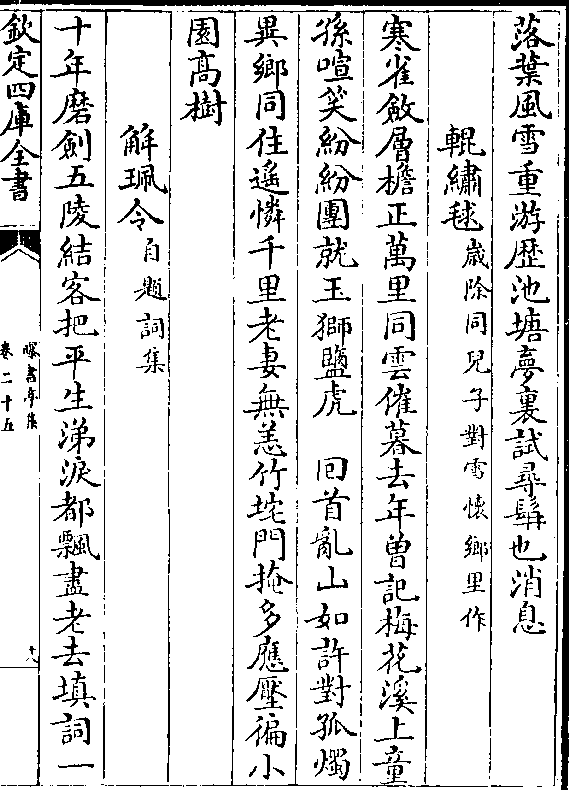 落葉風雪重游歴池塘夢裏試尋鬅也消息
輥繡毬歲除同兒子對雪懷鄉里作
寒雀斂層檐正萬里同雲催暮去年曾記梅花溪上童
孫喧笑紛紛團就玉獅鹽虎　回首亂山如許對孤燭
異鄉同住遙憐千里老妻無恙竹垞門掩多應壓徧小
園高樹
解珮令自題詞集
十年磨劍五陵結客把平生涕淚都飄盡老去填詞一
欽定四庫全書
曝書亭集
卷二十五
十八